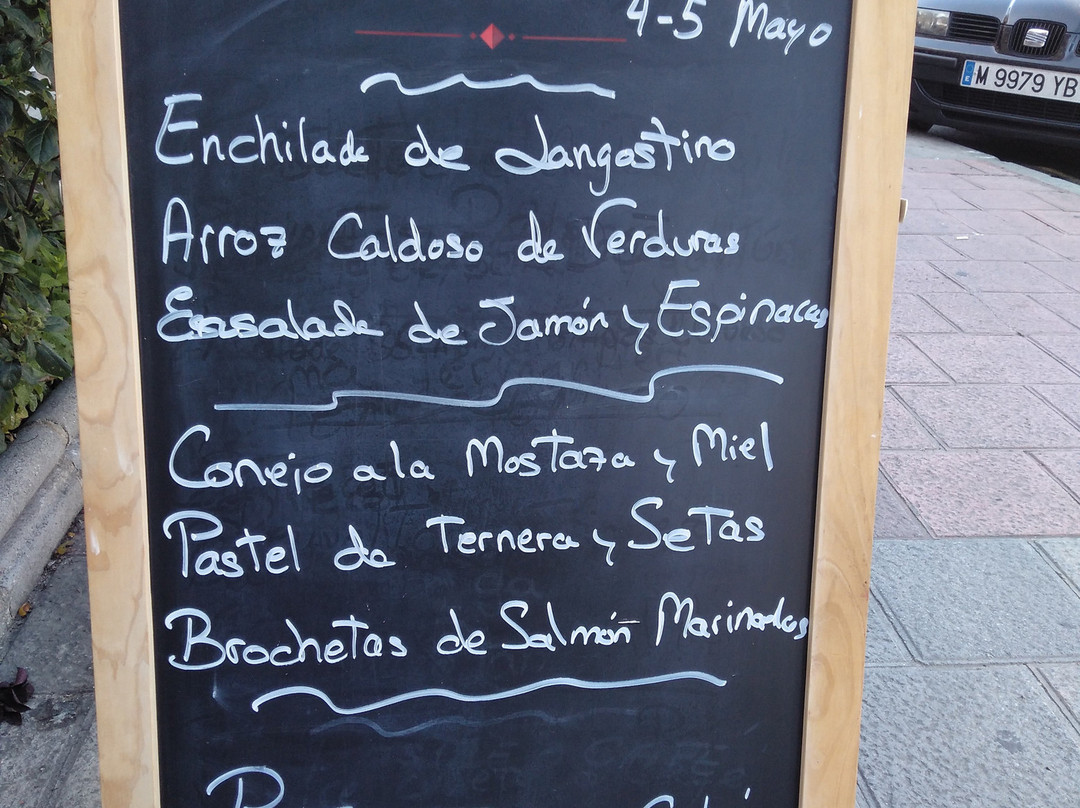 4-5 Mayo
Enchilada de Langostino
Arroz Caldoso de Verduras
Ensalada de Jamón y Espinacas
Conejo a la Mostaza y Miel
Pastel de Ternera y Setas
Brochetas de Salmón Marinados
M 9979 YB